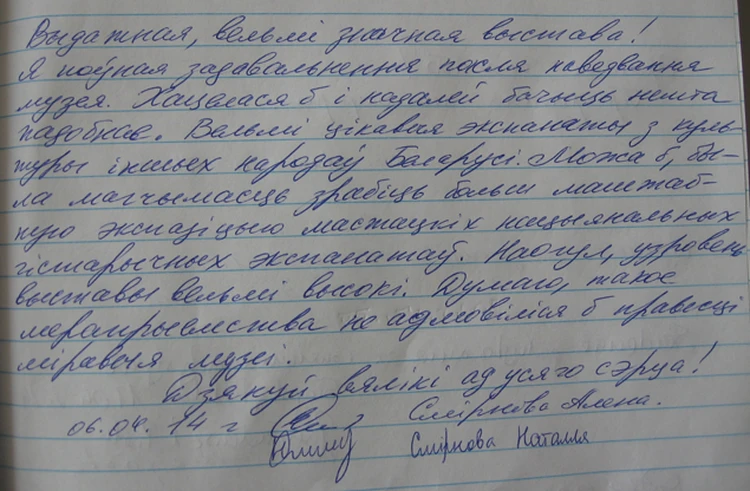 Выдатная, вельмі значная выстава!
Я поўная задавальнення пасля наведвання
музея. Хацелася б і надалей бачыць нешта
падобнае. Вельмі цікавыя экспанаты з куль-
туры іншых народаў Беларусі. Можа б, бы-
ла магчымасць зрабіць больш маштаб-
ную экспазіцыю мастацкіх нацыянальных
гістарычных экспанатаў. Наогул, узровень
выставы вельмі высокі. Думаю, такое
мерапрыемства не адмовіліся б правесці
міравыя музеі.
Дзякуй вялікі ад усяго сэрца!
06.04.14 г Смірнова Алена.
Смірнова Наталля